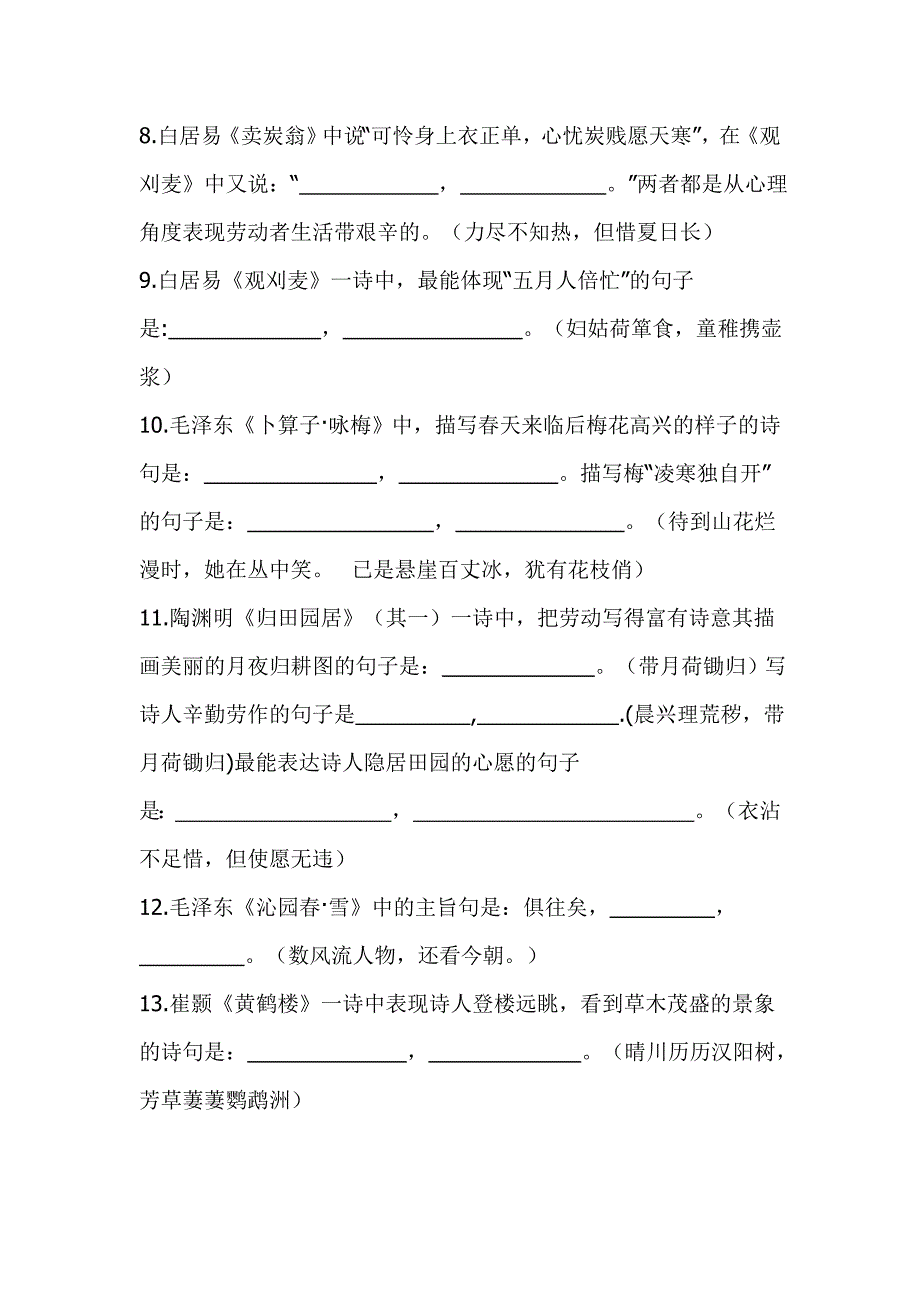 8.白居易《卖炭翁》中说“可怜身上衣正单，心忧炭贱愿天寒”，在《观
刈麦》中又说：“____________，____________。”两者都是从心理
角度表现劳动者生活带艰辛的。（力尽不知热，但惜夏日长）
9.白居易《观刈麦》一诗中，最能体现“五月人倍忙”的句子
是:_____________，_______________。（妇姑荷箪食，童稚携壶
浆）
10.毛泽东《卜算子·咏梅》中，描写春天来临后梅花高兴的样子的诗
句是：_______________，______________。描写梅“凌寒独自开”
的句子是：________________，______________。（待到山花烂
漫时，她在丛中笑。　已是悬崖百丈冰，犹有花枝俏）
11.陶渊明《归田园居》（其一）一诗中，把劳动写得富有诗意其描
画美丽的月夜归耕图的句子是：_____________。（带月荷锄归）写
诗人辛勤劳作的句子是__________,____________.(晨兴理荒秽，带
月荷锄归)最能表达诗人隐居田园的心愿的句子
是：__________________，________________________。（衣沾
不足惜，但使愿无违）
12.毛泽东《沁园春·雪》中的主旨句是：俱往矣，_________，
_________。（数风流人物，还看今朝。）
13.崔颢《黄鹤楼》一诗中表现诗人登楼远眺，看到草木茂盛的景象
的诗句是：______________，_____________。（晴川历历汉阳树，
芳草萋萋鹦鹉洲）